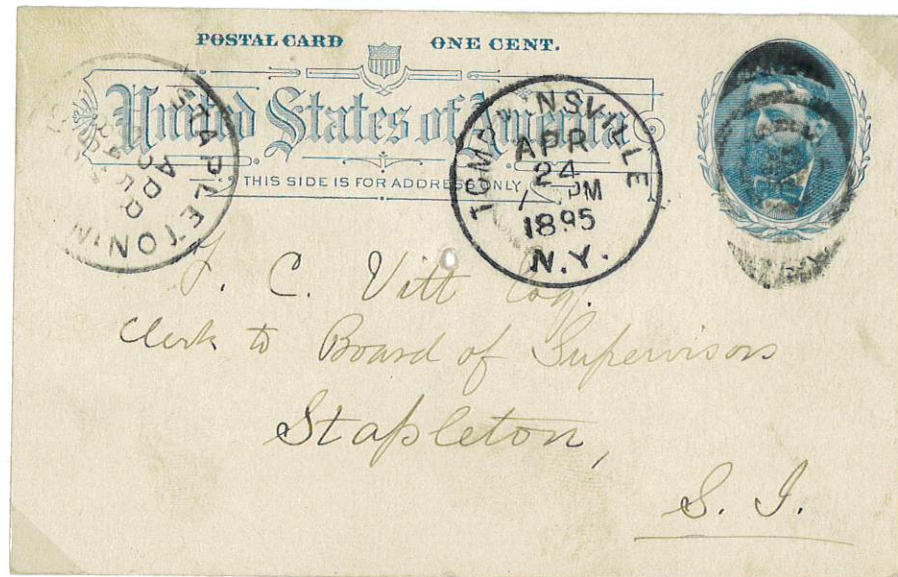 POSTAL CARD ONE CENT.
United States of America
THIS SIDE IS FOR ADDRESS ONLY
STAPLETON N
APR
TOMPKINSVILLE
APR
24
PM
1895
N.Y.
C. Vitt Esq.
Clerk to Board of Supervisors
Stapleton,
S. I.